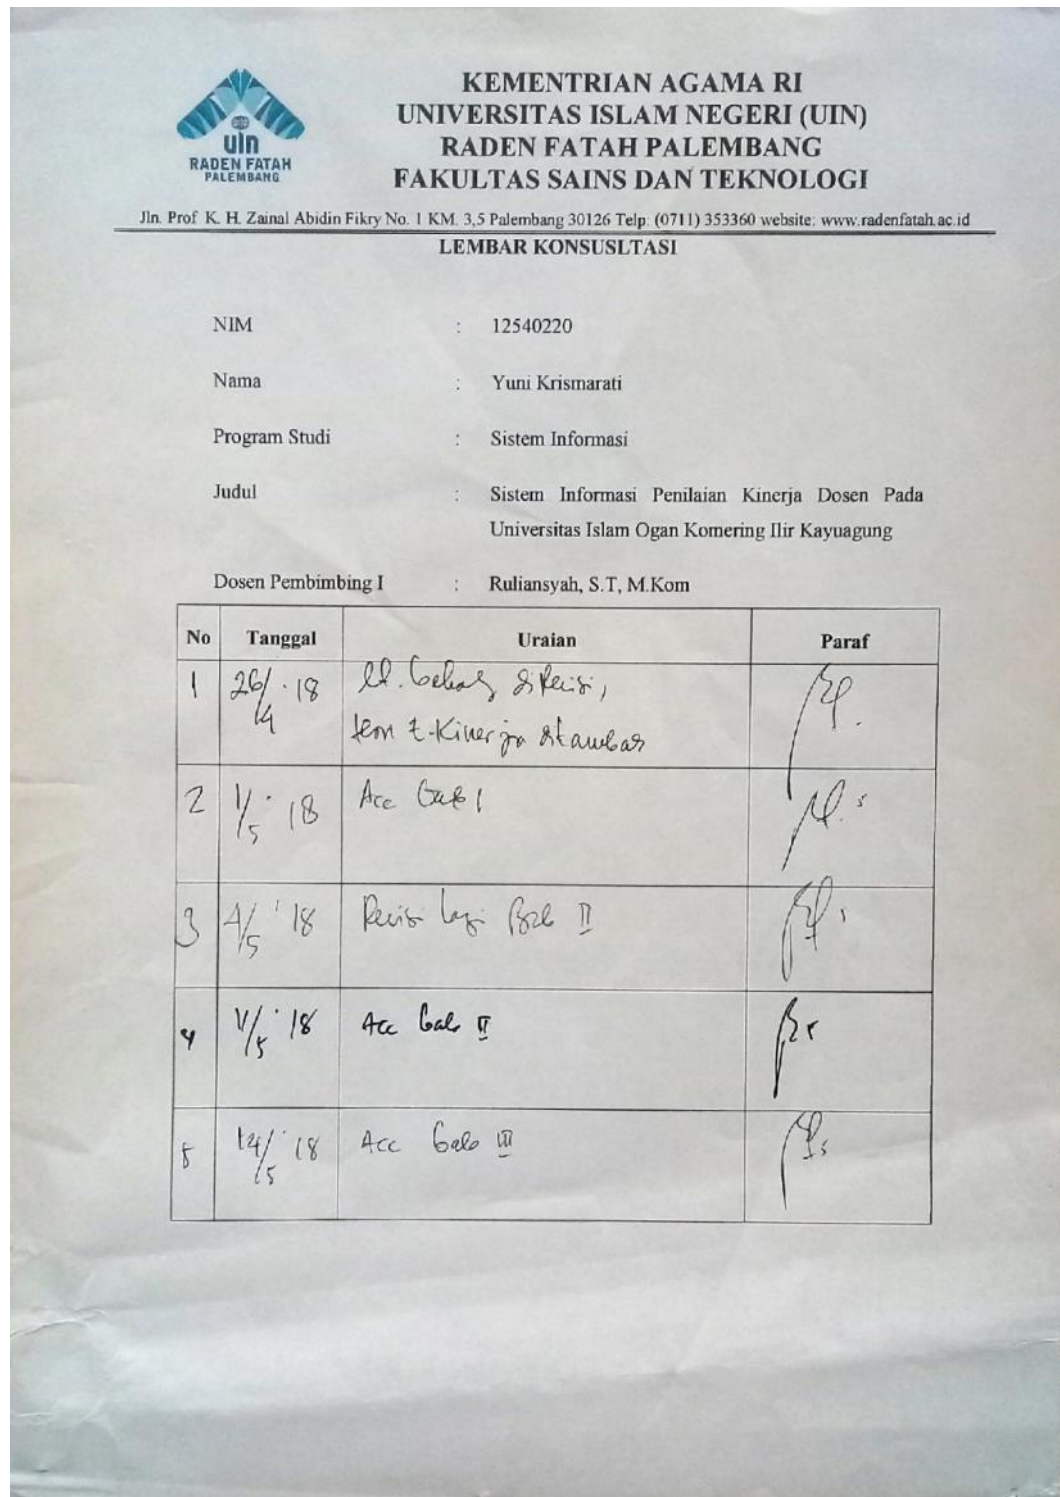 uin
RADEN FATAH
PALEMBANG
KEMENTRIAN AGAMA RI
UNIVERSITAS ISLAM NEGERI (UIN)
RADEN FATAH PALEMBANG
FAKULTAS SAINS DAN TEKNOLOGI
Jln. Prof. K. H. Zainal Abidin Fikry No. 1 KM. 3,5 Palembang 30126 Telp: (0711) 353360 website: www.radenfatah.ac.id
LEMBAR KONSUSLTASI
NIM : 12540220
Nama : Yuni Krismarati
Program Studi : Sistem Informasi
Judul : Sistem Informasi Penilaian Kinerja Dosen Pada
Universitas Islam Ogan Komering Ilir Kayuagung
Dosen Pembimbing I : Ruliansyah, S.T, M.Kom
No Tanggal Uraian Paraf
1 26/4 '18 direvisi,
Kinerja ditambah
2 1/5 '18 Acc bab I
3 4/5 '18 Revisi lagi Bab II
4 11/5 '18 Acc bab II
5 14/5 '18 Acc bab III